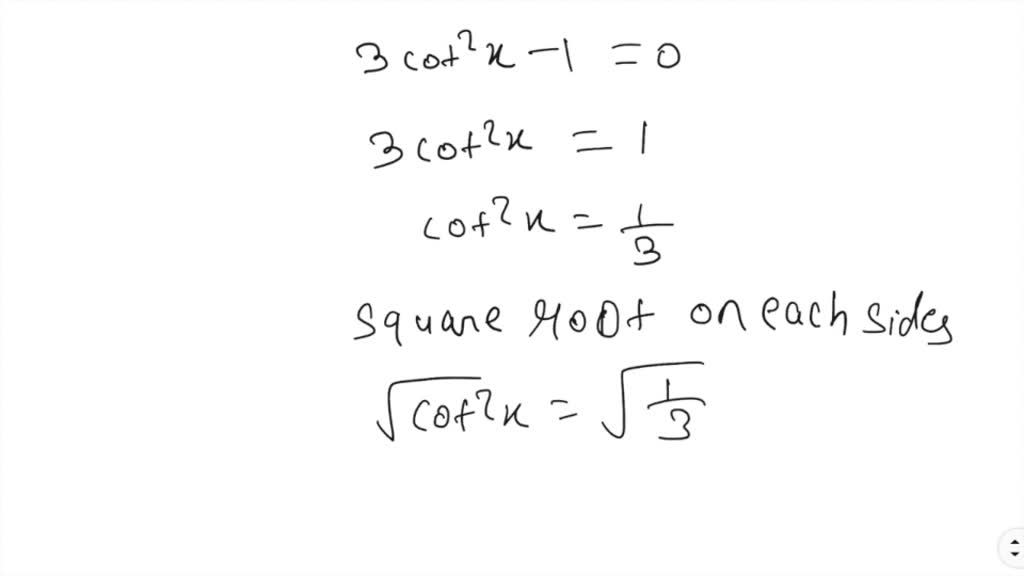 3 cot²x - 1 = 0
3 cot²x = 1
cot²x = 1/3
square root on each sides
√cot²x = √1/3